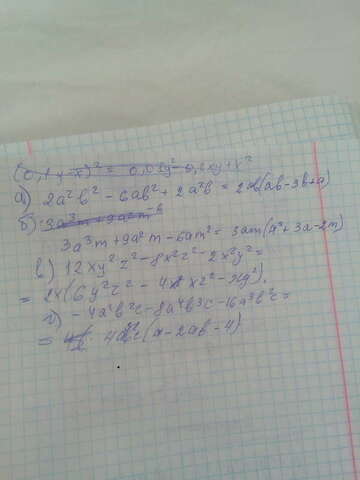 (0,1y-x)² = 0,01y²-0,2xy+x²
а) 2a²b² - 6ab² + 2a²b = 2ab(ab-3b+a)
б) 3a³m + 9a²m
3a³m + 9a²m - 6am² = 3am(a²+3a-2m)
в) 12xy²z² - 8x²z² - 2x²y² =
= 2x(6y²z² - 4xz² - xy²).
г) -4a²b²c - 8a⁴b³c - 16a³b²c =